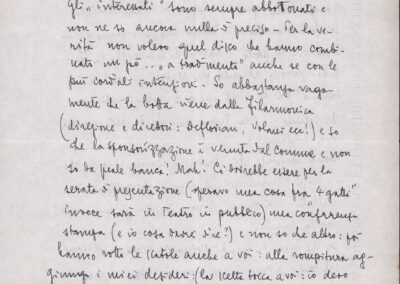 gli "interessati" sono sempre abbottonati e
non ne so ancora nulla di preciso - Per la ve-
rità non volevo quel disco che hanno combi-
nato un pò... "a tradimento" anche se con le
più cordiali intenzioni. So abbastanza vaga-
mente che la botta viene dalla Filarmonica
(direzione e direttori: , Volani ecc!) e so
che la sponsorizzazione è venuta dal Comune e non
so da quale banca! Mah! Ci dovrebbe essere per la
serata di presentazione (speravo una cosa fra "4 gatti"
invece sarà in Teatro in pubblico) una conferenza
stampa (e io cosa dovrò dire?) e non so che altro: poi
hanno rotto le scatole anche a voi: alla rompitura ag-
giungo i miei desideri: (la scelta tocca a voi: io devo